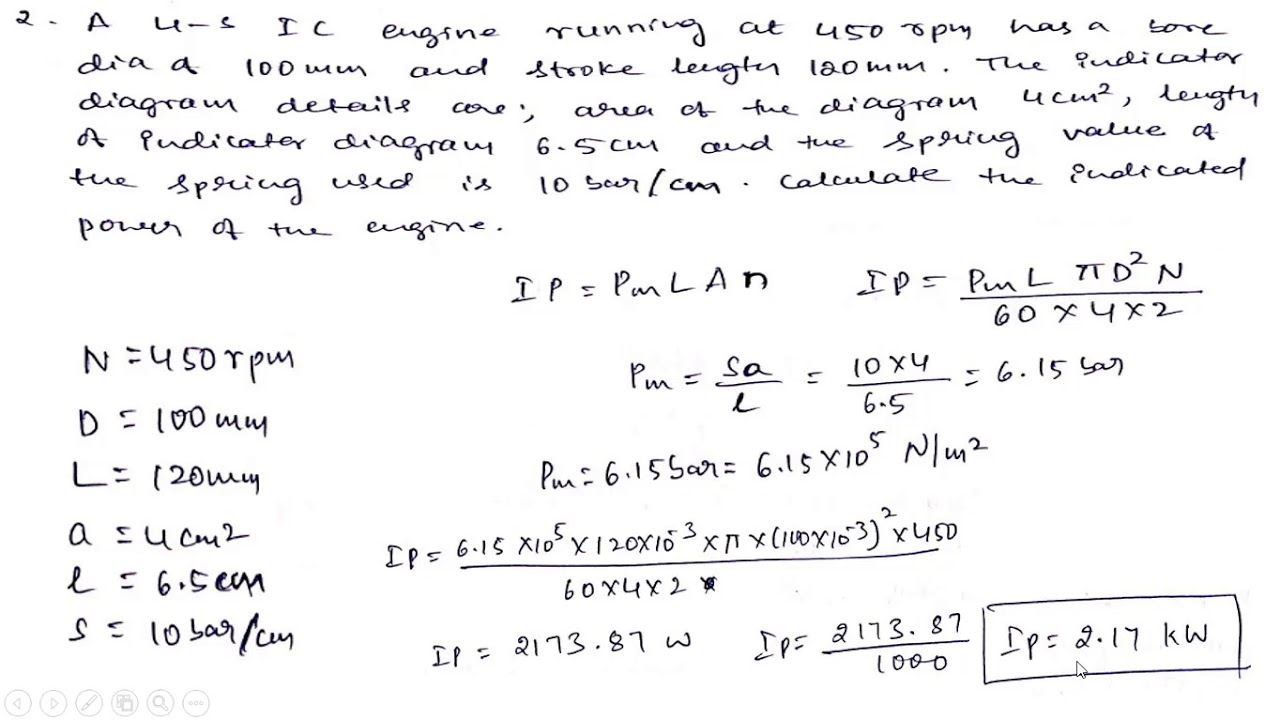 2. A 4-s IC engine running at 450 rpm has a bore
dia of 100 mm and stroke length 120 mm. The indicator
diagram details are; area of the diagram 4 cm², length
of indicator diagram 6.5 cm and the spring value of
the spring used is 10 bar/cm. Calculate the indicated
power of the engine.
IP = Pm L A n    IP = Pm L πD² N / 60 × 4 × 2
N = 450 rpm
D = 100 mm
L = 120 mm
a = 4 cm²
l = 6.5 cm
s = 10 bar/cm
Pm = Sa / l = 10 × 4 / 6.5 = 6.15 bar
Pm = 6.15 bar = 6.15 × 10⁵ N/m²
IP = 6.15 × 10⁵ × 120 × 10⁻³ × π × (100 × 10⁻³)² × 450 / 60 × 4 × 2
IP = 2173.87 W    IP = 2173.87 / 1000    IP = 2.17 kW